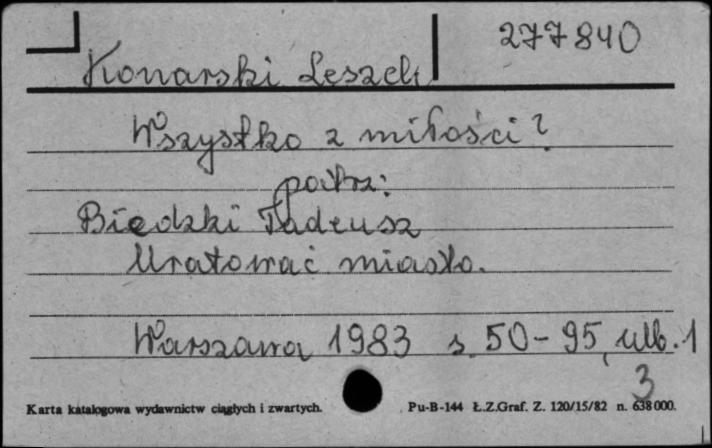 277840
Konarski Leszek
Wszystko z miłości?
patrz:
Biedzki Tadeusz
Uratować miasto.
Warszawa 1983 s. 50-95, nlb. 1
3
Karta katalogowa wydawnictw ciągłych i zwartych. Pu-B-144 Ł.Z.Graf. Z. 120/15/82 n. 638000.